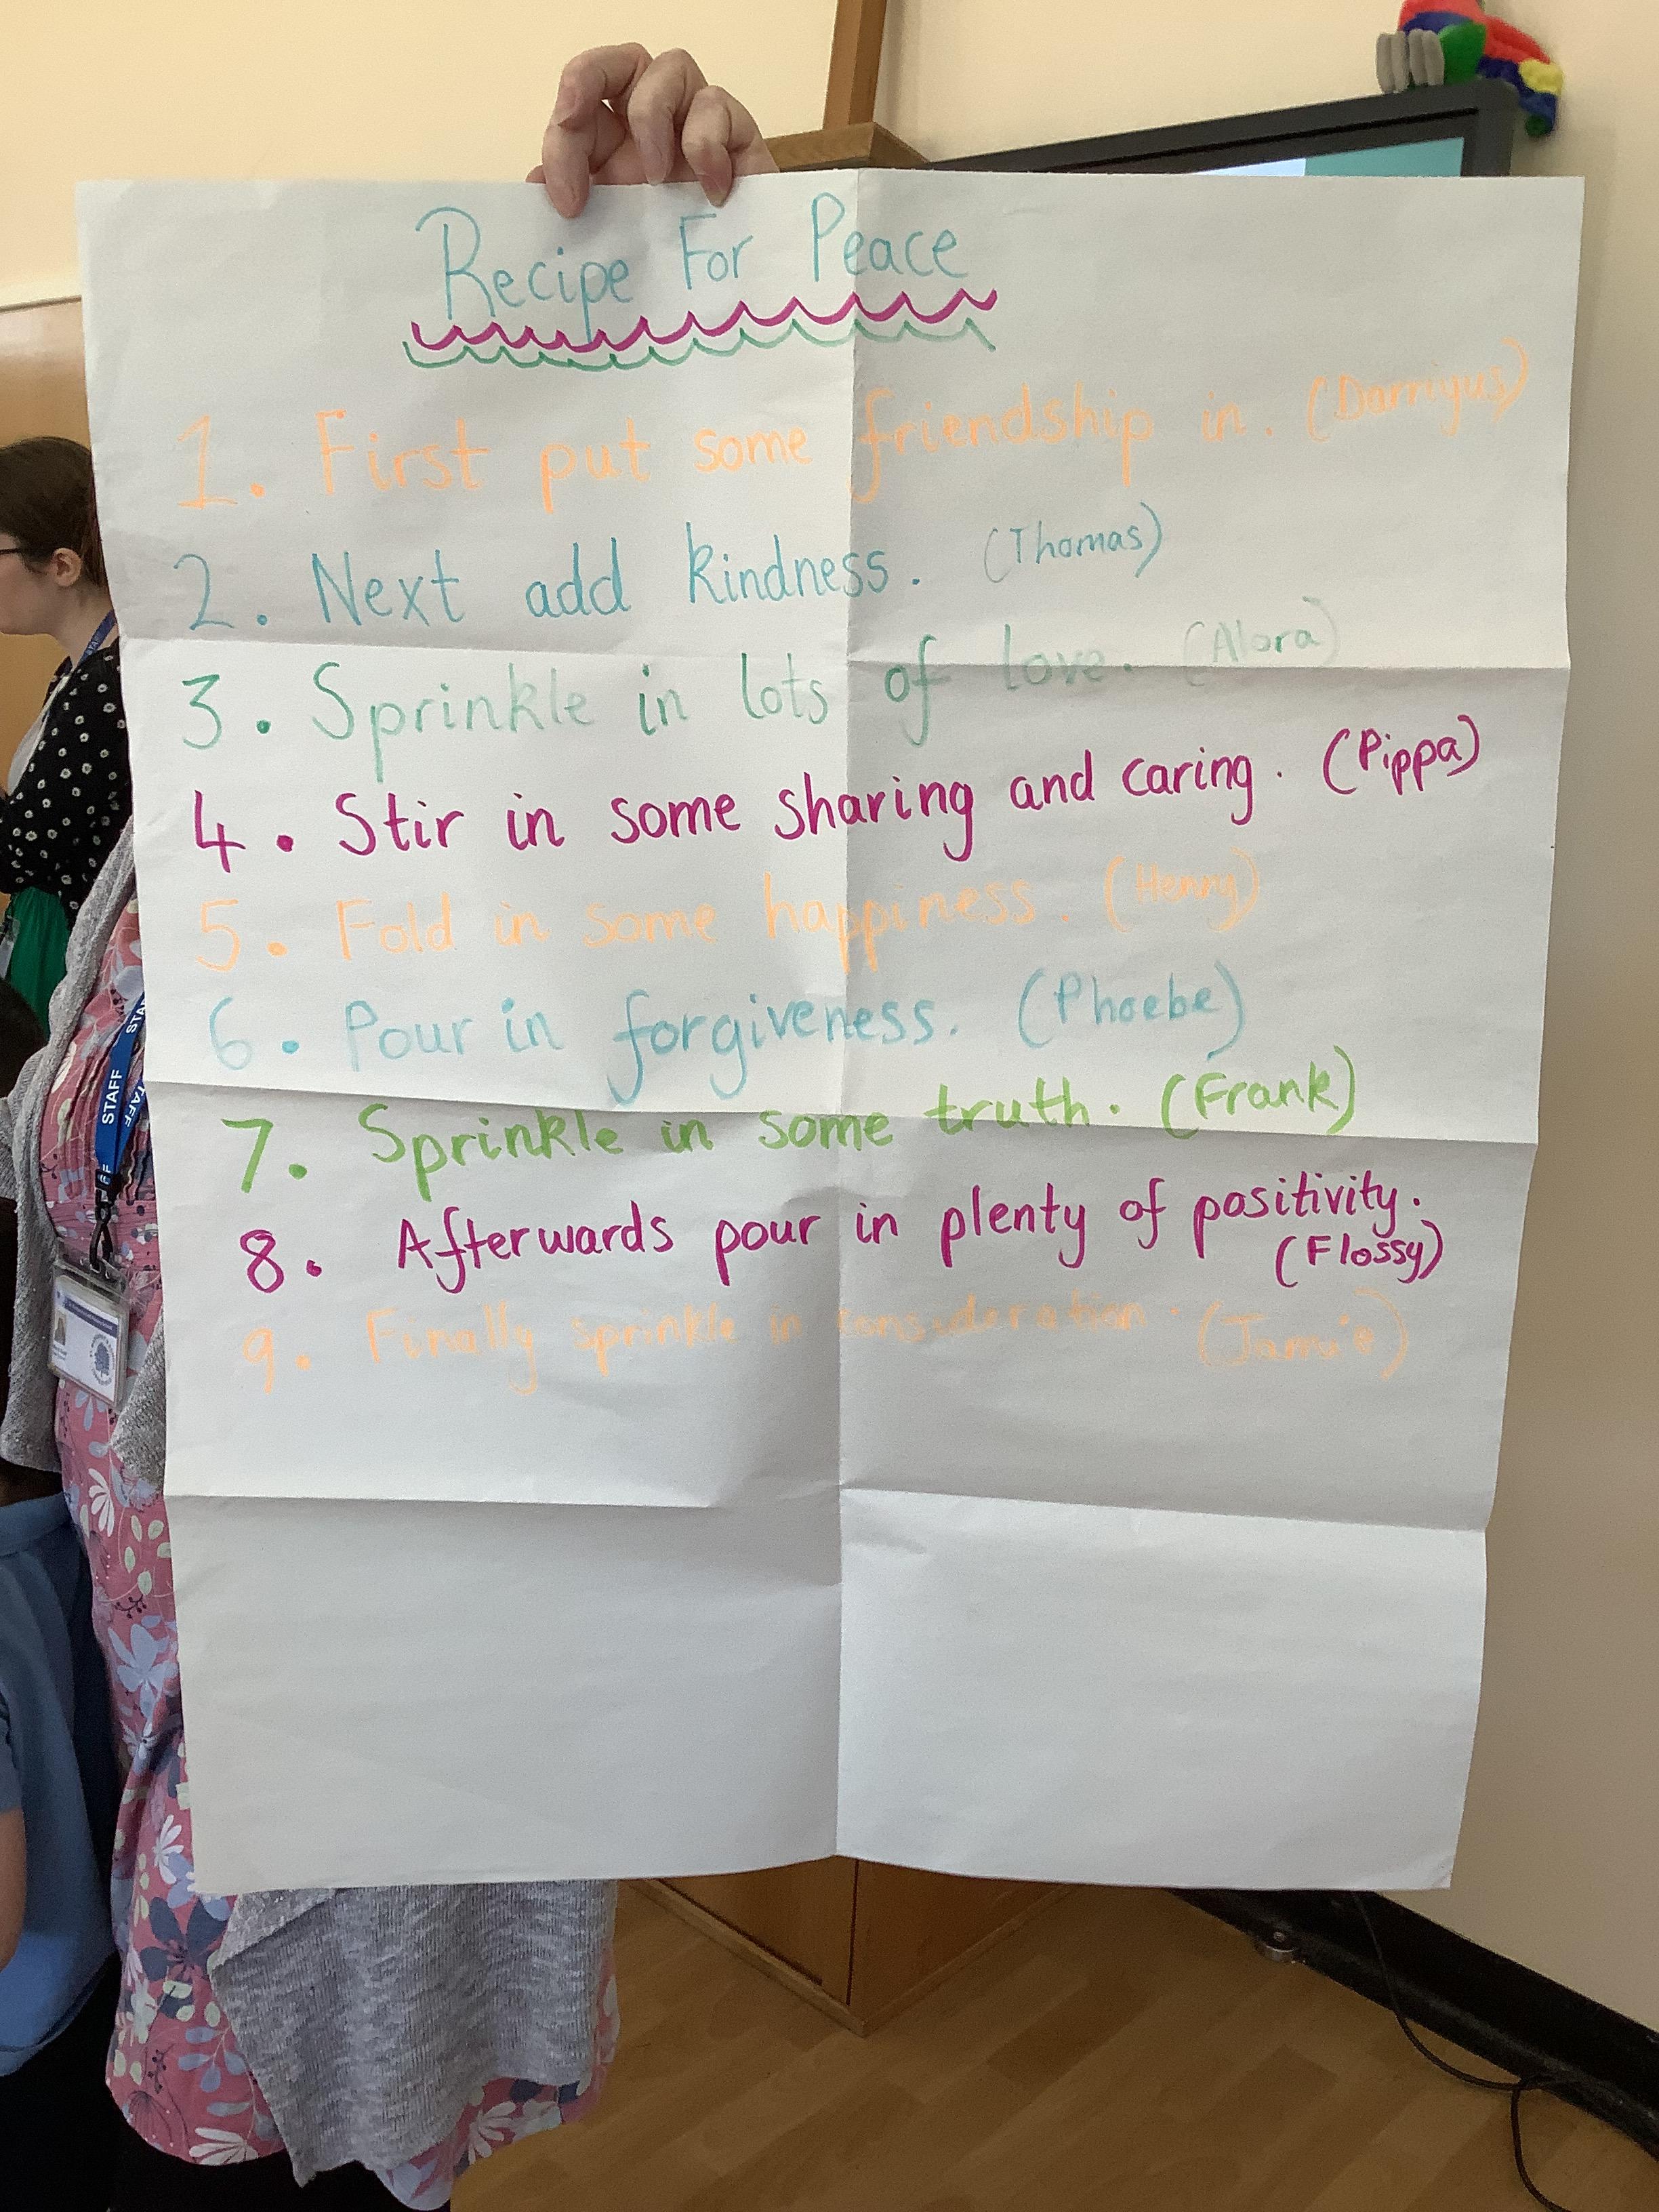 Recipe For Peace
1. First put some friendship in. (Darriyus)
2. Next add kindness. (Thomas)
3. Sprinkle in lots of love. (Alora)
4. Stir in some sharing and caring. (Pippa)
5. Fold in some happiness. (Henry)
6. Pour in forgiveness. (Phoebe)
7. Sprinkle in some truth. (Frank)
8. Afterwards pour in plenty of positivity.
(Flossy)
9. Finally sprinkle in consideration. (Jamie)
STAFF